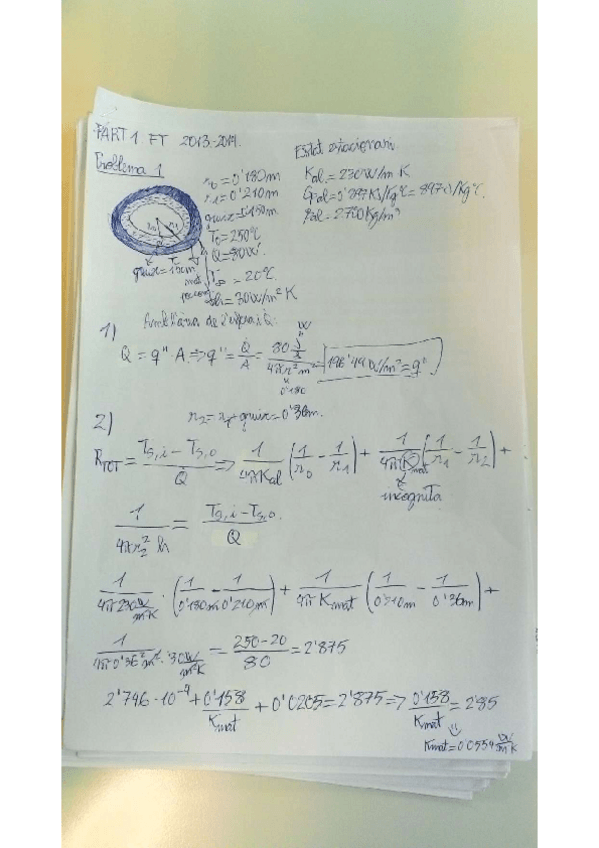 PART 1 FT 2013-2014.
Problema 1
Estat estacionari.
r0=0'180m
r1=0'210m
gruix=0'150m
T=250ºC
Q=80W
T∞=20ºC.
h=30W/m²K
Kal=230W/m K
Cpal=0'897KJ/KgºC=897J/KgºC.
ρal=2700Kg/m³
gruix=15cm
1)
Q=q''·A⇒q''=Q̇/A=80 J/s / 4πr² m²=196'49W/m²=q''
0'180
2)
r2=r1+gruix=0'36m.
RTOT=(Ts,i-Ts,o)/Q̇⇒1/(4πKal)(1/r0-1/r1)+1/(4πKmat)(1/r1-1/r2)+
incògnita
1/(4πr2²h)=(Ts,i-Ts,o)/Q
1/(4π230 W/m²K)·(1/0'180m-1/0'210m)+1/(4πKmat)(1/0'210m-1/0'36m)+
1/(4π0'36²m²·30W/m²K)=(250-20)/80=2'875
2'746·10⁻⁴+0'158/Kmat+0'0205=2'875⇒0'158/Kmat=2'85
Kmat=0'0554W/m K